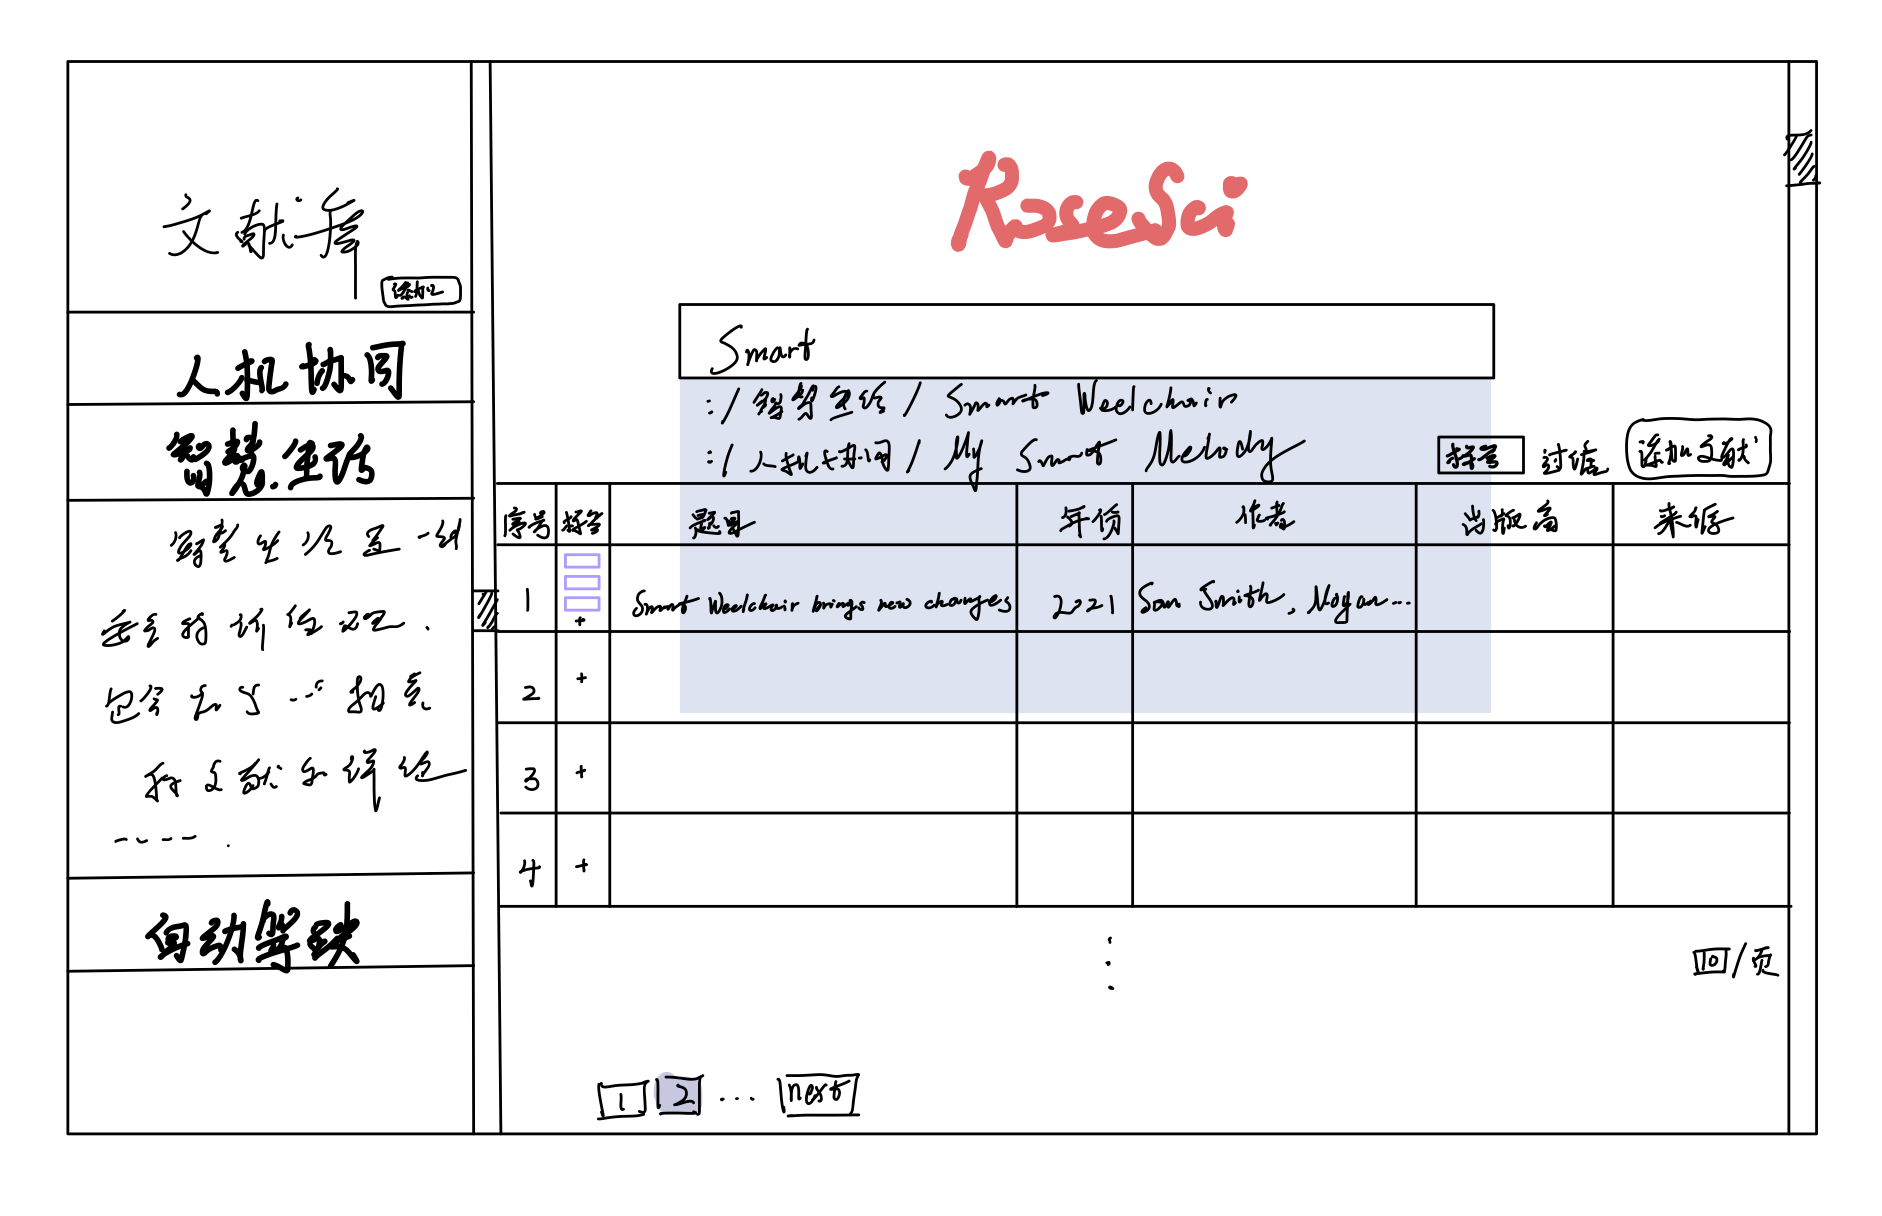 文献库
添加
人机协同
智慧生活
智慧生活是一种
的价值
包含了 … 相关
和文献和
自动驾驶
RoseSci
Smart
:/ 智慧生活 / Smart Weelchair
:/ 人机协同 / My Smart Melody
标签 过滤 添加文献
序号 标签 题目 年份 作者 出版商 来源
1 Smart Weelchair brings new changes 2021 Sam Smith, Noyan...
+
2 +
3 +
4 +
10/页
1 2 ... next